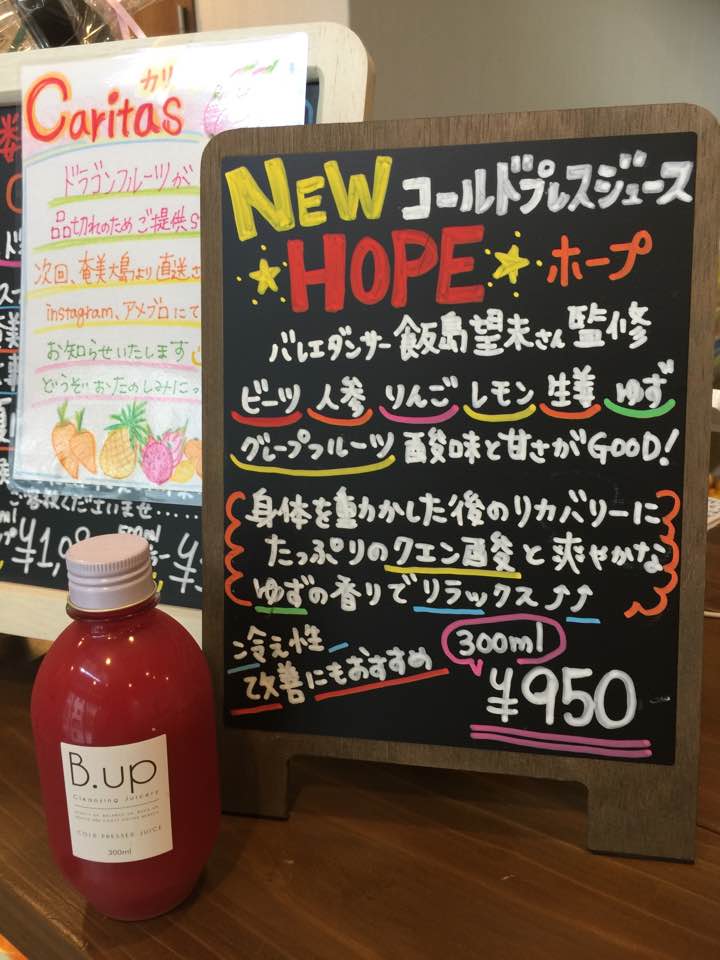 カリ
Caritas
ドラゴンフルーツが
品切れのため ご提供
次回、奄美大島より直送
instagram、アメブロにて
お知らせいたします
どうぞおたのしみにっ
ご容赦くださいませ.....
NEW コールドプレスジュース
HOPE ホープ
バレエダンサー飯島望未さん監修
ビーツ 人参 りんご レモン 生姜 ゆず
グレープフルーツ 酸味と甘さがGOOD!
身体を動かした後のリカバリーに
たっぷりのクエン酸と爽やかな
ゆずの香りでリラックス⤴⤴
冷え性
改善にもおすすめ
300ml
¥950
B.up
Cleansing Juicery
COLD PRESSED JUICE
300ml